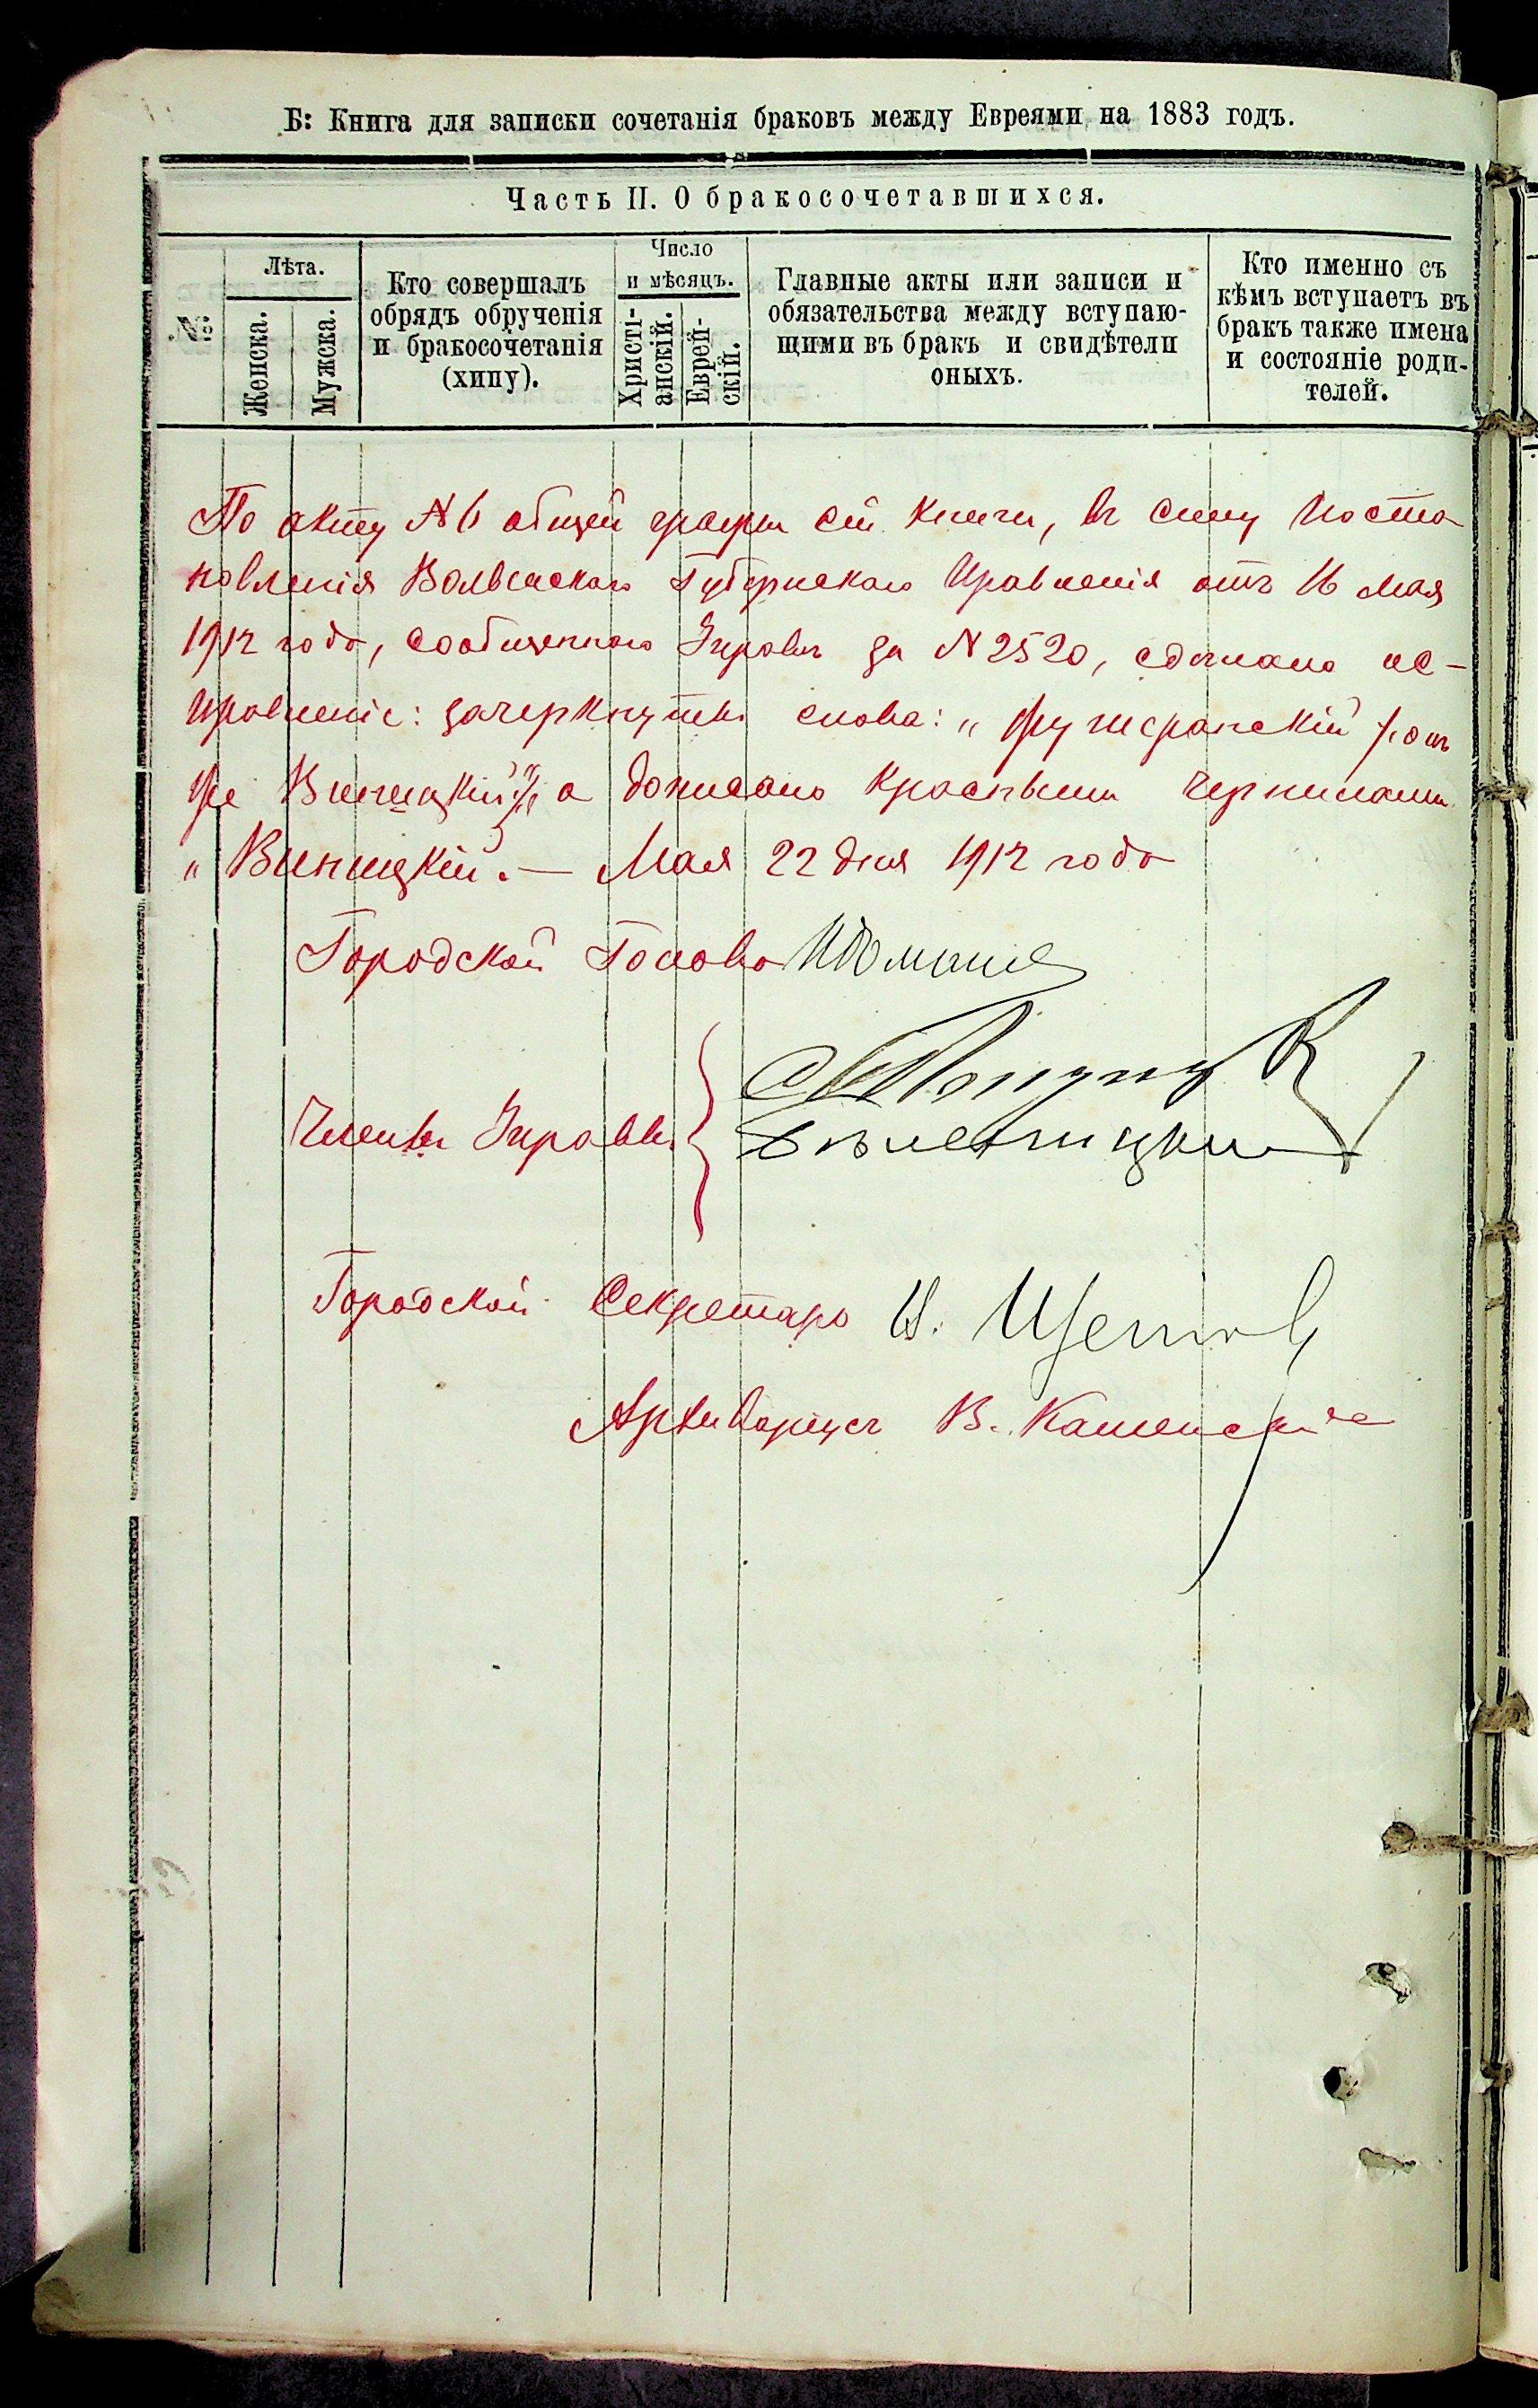 Б: Книга для записки сочетанія браковъ между Евреями на 1883 годъ.
Часть II. О бракосочетавшихся.
№
Лѣта.
Женска.
Мужска.
Кто совершалъ
обрядъ обрученія
и бракосочетанія
(хипу).
Число
и мѣсяцъ.
Христі-
анскій.
Еврей-
скій.
Главные акты или записи и
обязательства между вступаю-
щими въ бракъ и свидѣтели
оныхъ.
Кто именно съ
кѣмъ вступаетъ въ
бракъ также имена
и состояніе роди-
телей.
По акту № 6 общей графы сей книги, въ силу поста
новленія Волынскаго Губернскаго Правленія отъ 16 мая
1912 года, сообщеннаго Управѣ за № 2520, сдѣлано ис-
правленіе: зачеркнуты слова: „
Виницкій" а дописано красными чернилами
„Виницкій. — Мая 22 дня 1912 года
Городской Голова
Члены Управы
Городской Секретарь И.
Архиваріусъ В. Каменскій